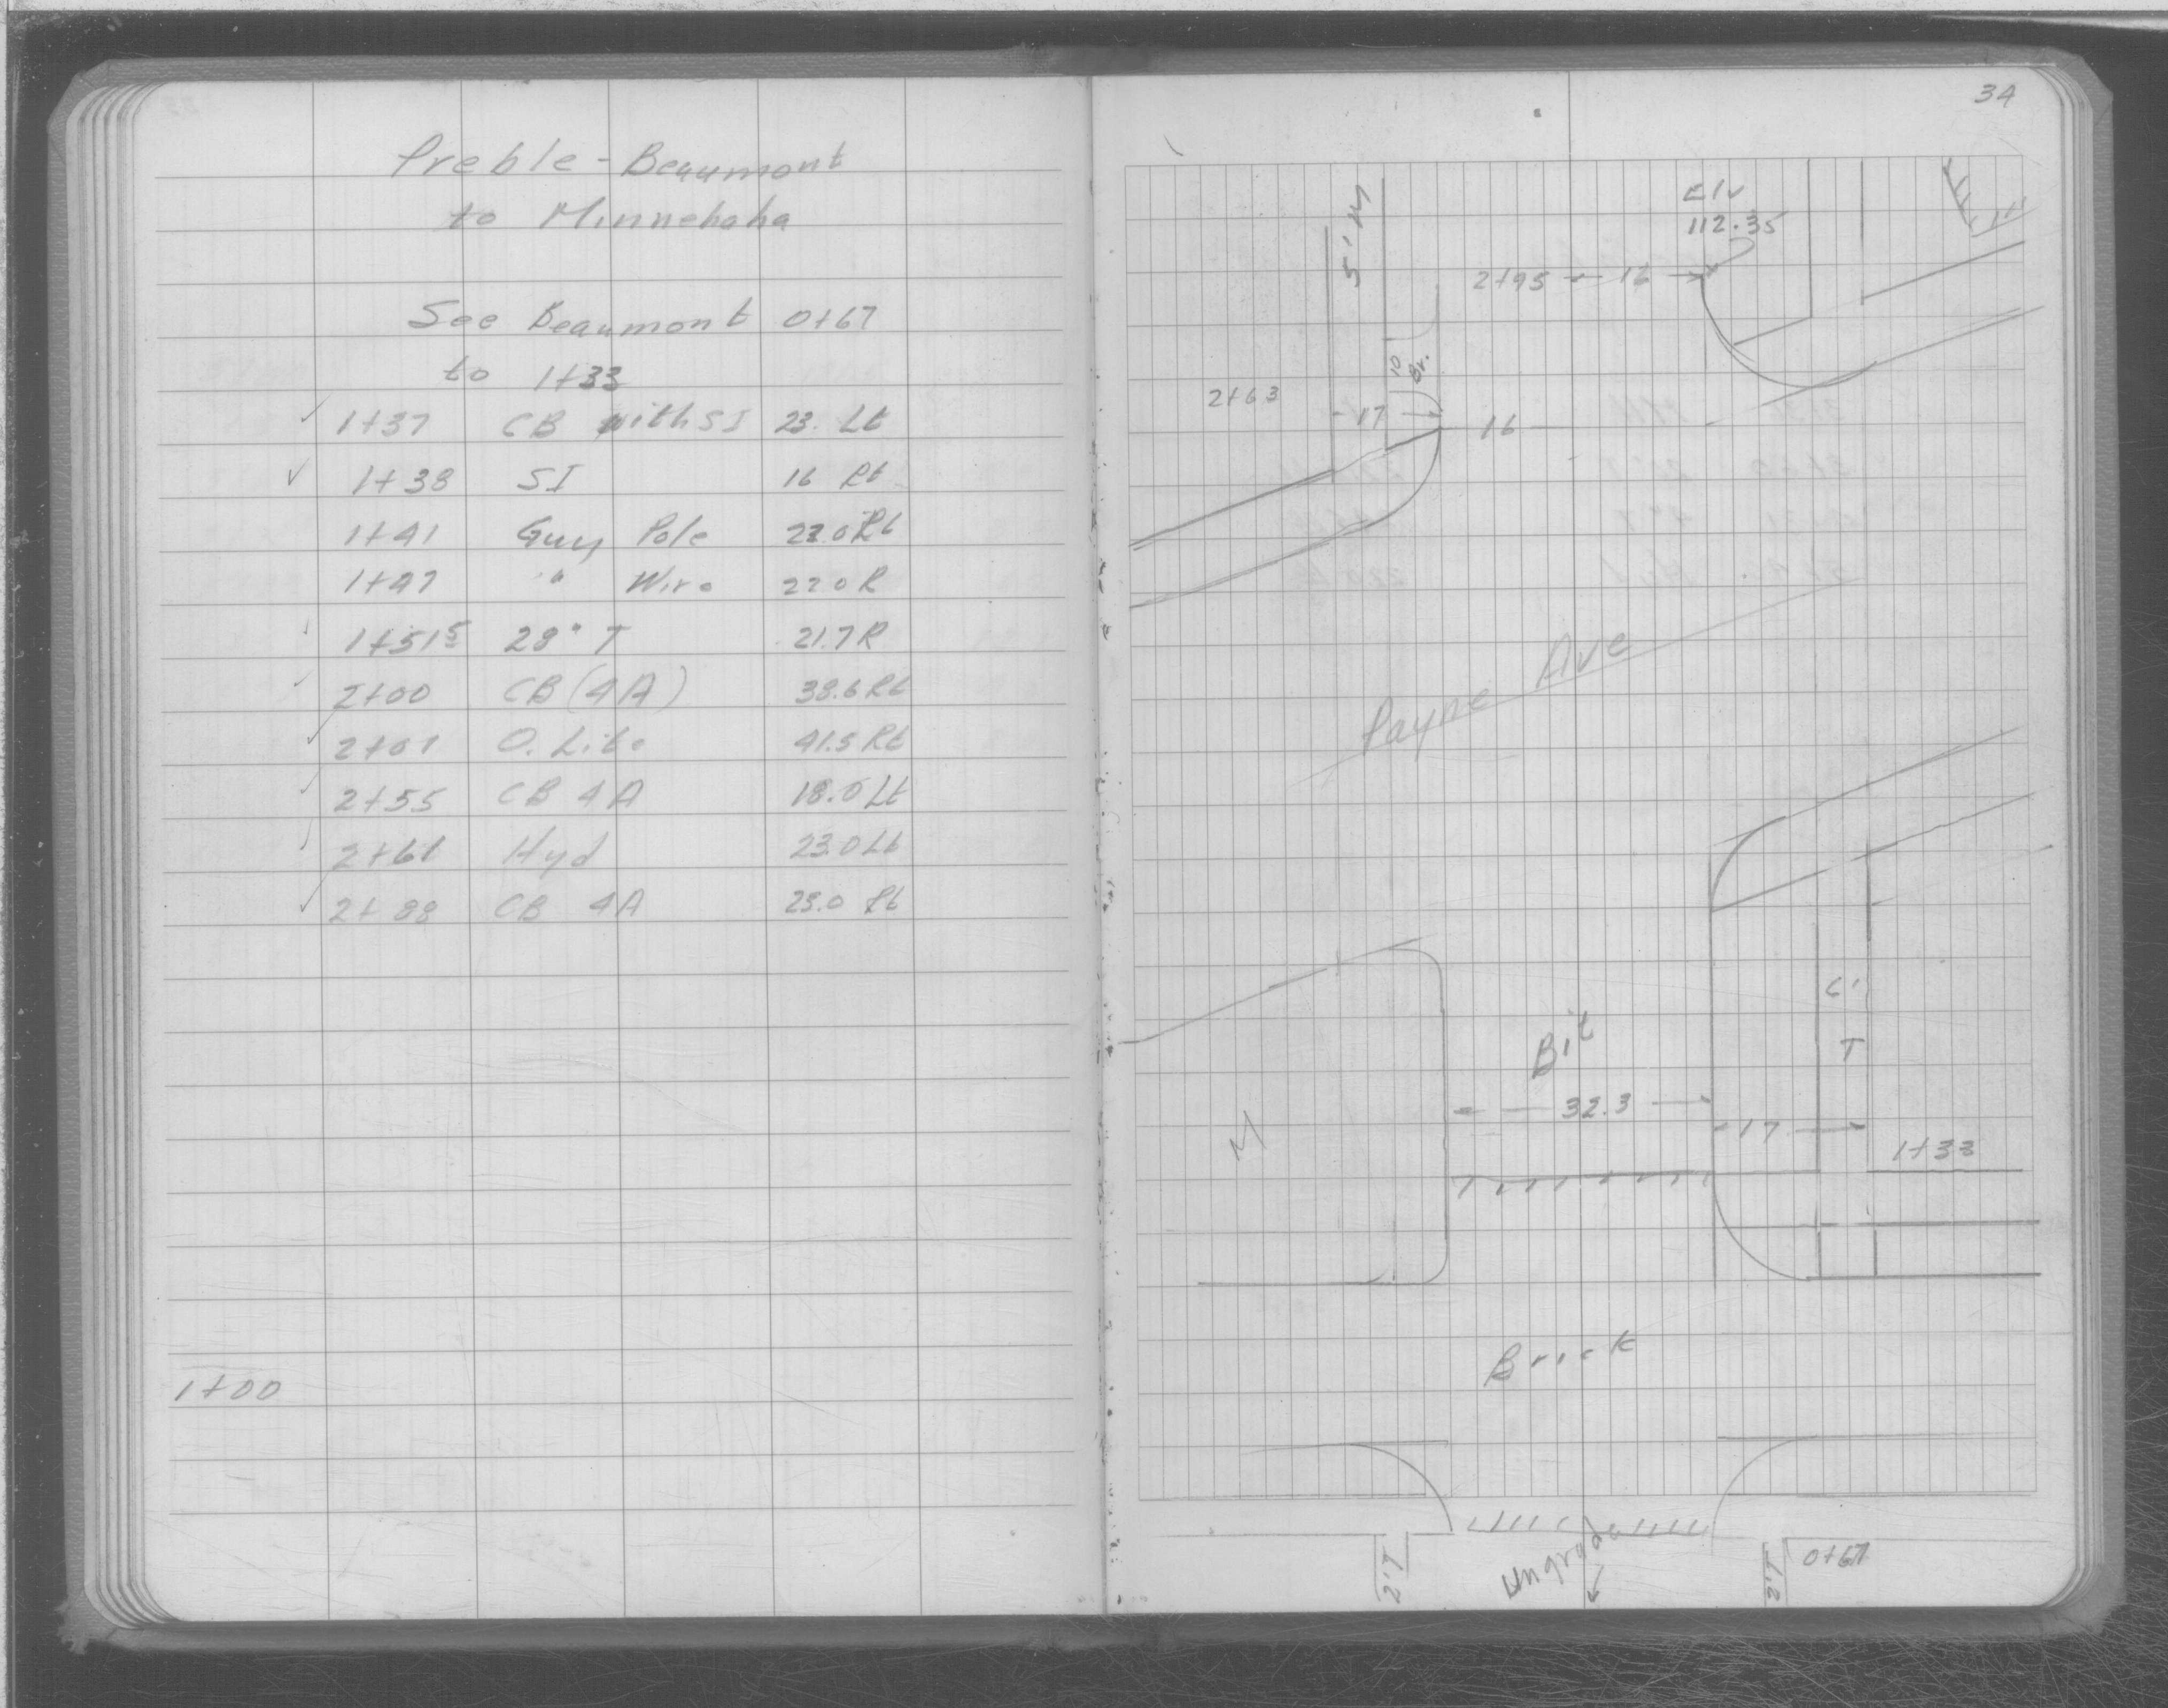 Preble - Beaumont
to Minnehaha
See Beaumont 0+67
to 1+33
✓ 1+37 CB with SI 23. Lt
✓ 1+38 SI 16 Rt
1+41 Guy Pole 22.0 Rt
1+47 " Wire 22.0 R
✓ 1+51⁵ 28" T 21.7 R
✓ 2+00 CB (4A) 38.6 Rt
✓ 2+01 O. Lite 41.5 Rt
✓ 2+55 CB 4A 18.0 Lt
✓ 2+61 Hyd 23.0 Lt
✓ 2+88 CB 4A 25.0 Rt
1+00
34
Elv
112.35
5' M
2+95 16
10
Br.
2+63
17 16
Payne Ave
6'
T
Bit
32.3
17
1+33
M
Brick
2'T
2'T
0+67